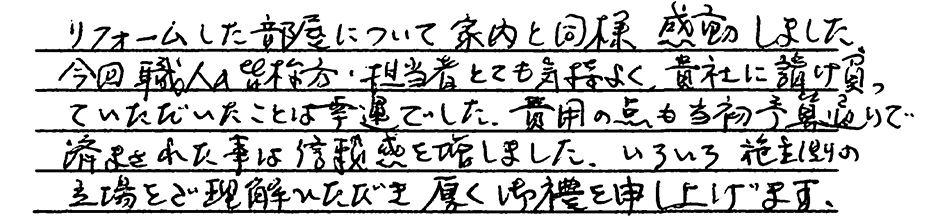 リフォームした部屋について家内と同様 感動しました、
今回 職人の皆様方・担当者とても気持よく、貴社に請け負っ
ていただいたことは幸運でした。費用の点も当初予算通りで
済まされた事は信頼感を増しました。いろいろ 施主側の
立場をご理解いただき 厚く御禮を申し上げます。